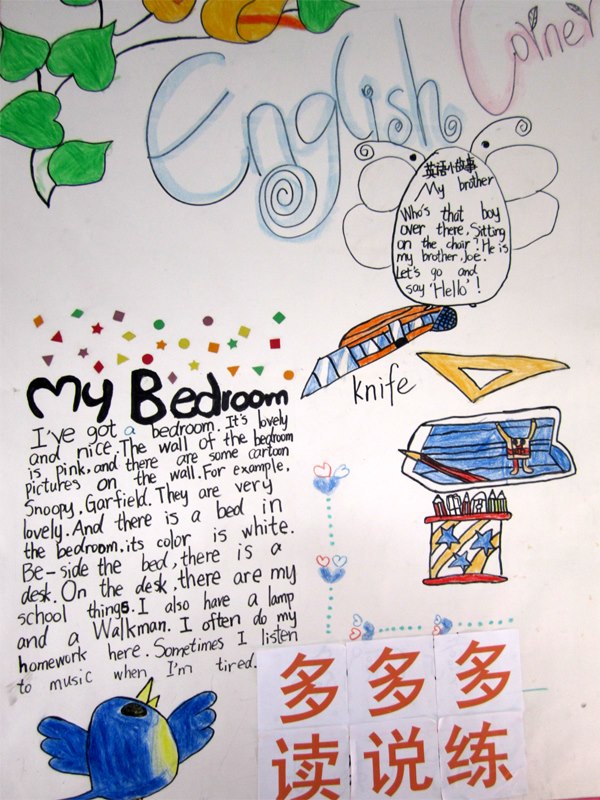 English Corner
英语小故事
My brother
Who's that boy
over there, Sitting
on the chair? He is
my brother, Joe.
Let's go and
say 'Hello'!
knife
My Bedroom
I've got a bedroom. It's lovely
and nice. The wall of the bedroom
is pink, and there are some cartoon
pictures on the wall. For example,
Snoopy, Garfield. They are very
lovely. And there is a bed in
the bedroom, its color is white.
Be-side the bed, there is a
desk. On the desk, there are my
school things. I also have a lamp
and a Walkman. I often do my
homework here. Sometimes I listen
to music when I'm tired.
多多多
读说练